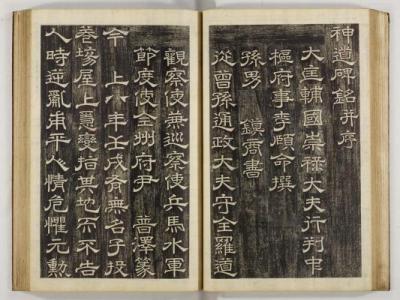 神道碑銘并序
大匡輔國崇祿大夫行判中
樞府事李頤命撰
孫男 鎭商書
從曾孫通政大夫守全羅道
觀察使兼巡察使兵馬水軍
節度使全州府尹 普澤篆
今 上八年壬戌有無名子投
卷場屋上急變指其地不不告
人時逆亂甫平人情危懼元勳